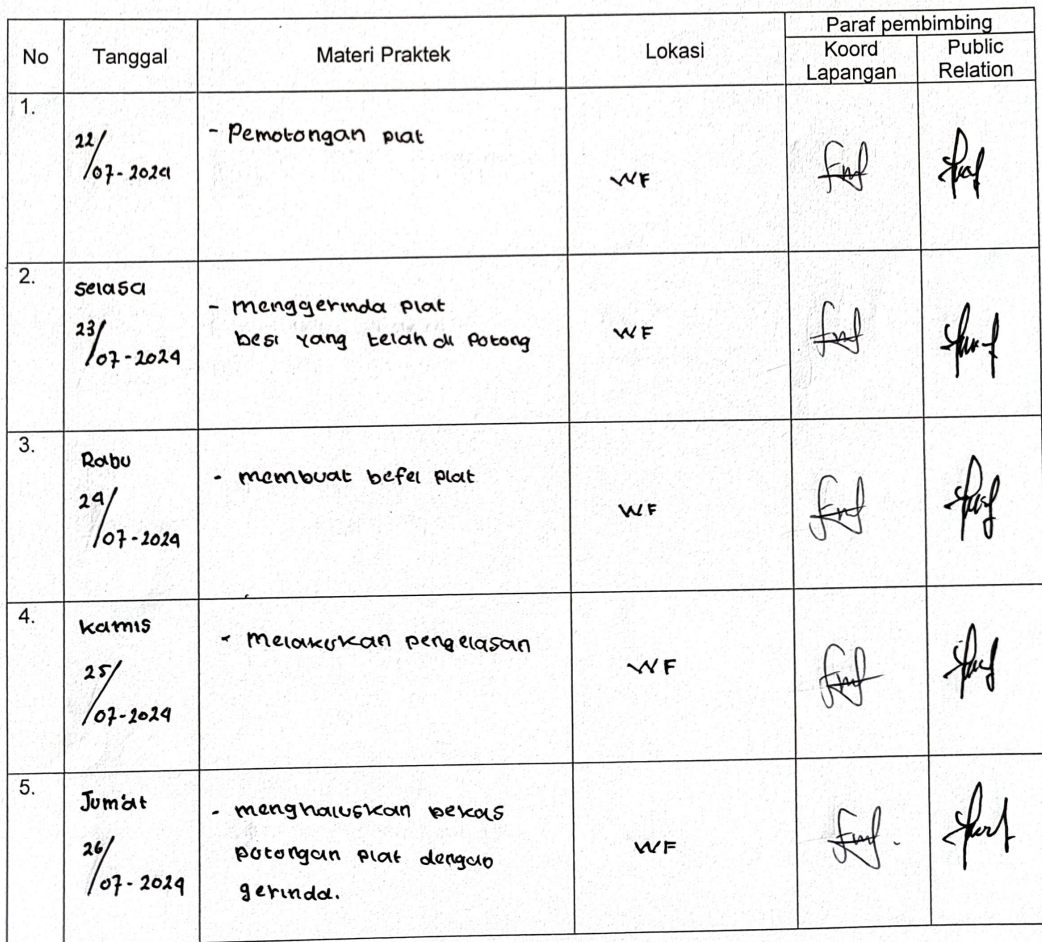 No Tanggal Materi Praktek Lokasi Paraf pembimbing
Koord Lapangan Public Relation
1.
22/07-2024
- Pemotongan plat
WF
2.
selasa
23/07-2024
- menggerinda plat
besi yang telah di potong
WF
3.
Rabu
24/07-2024
- membuat befel plat
WF
4.
kamis
25/07-2024
- melakukan pengelasan
WF
5.
Jum'at
26/07-2024
- menghaluskan bekas
potongan plat dengan
gerinda.
WF